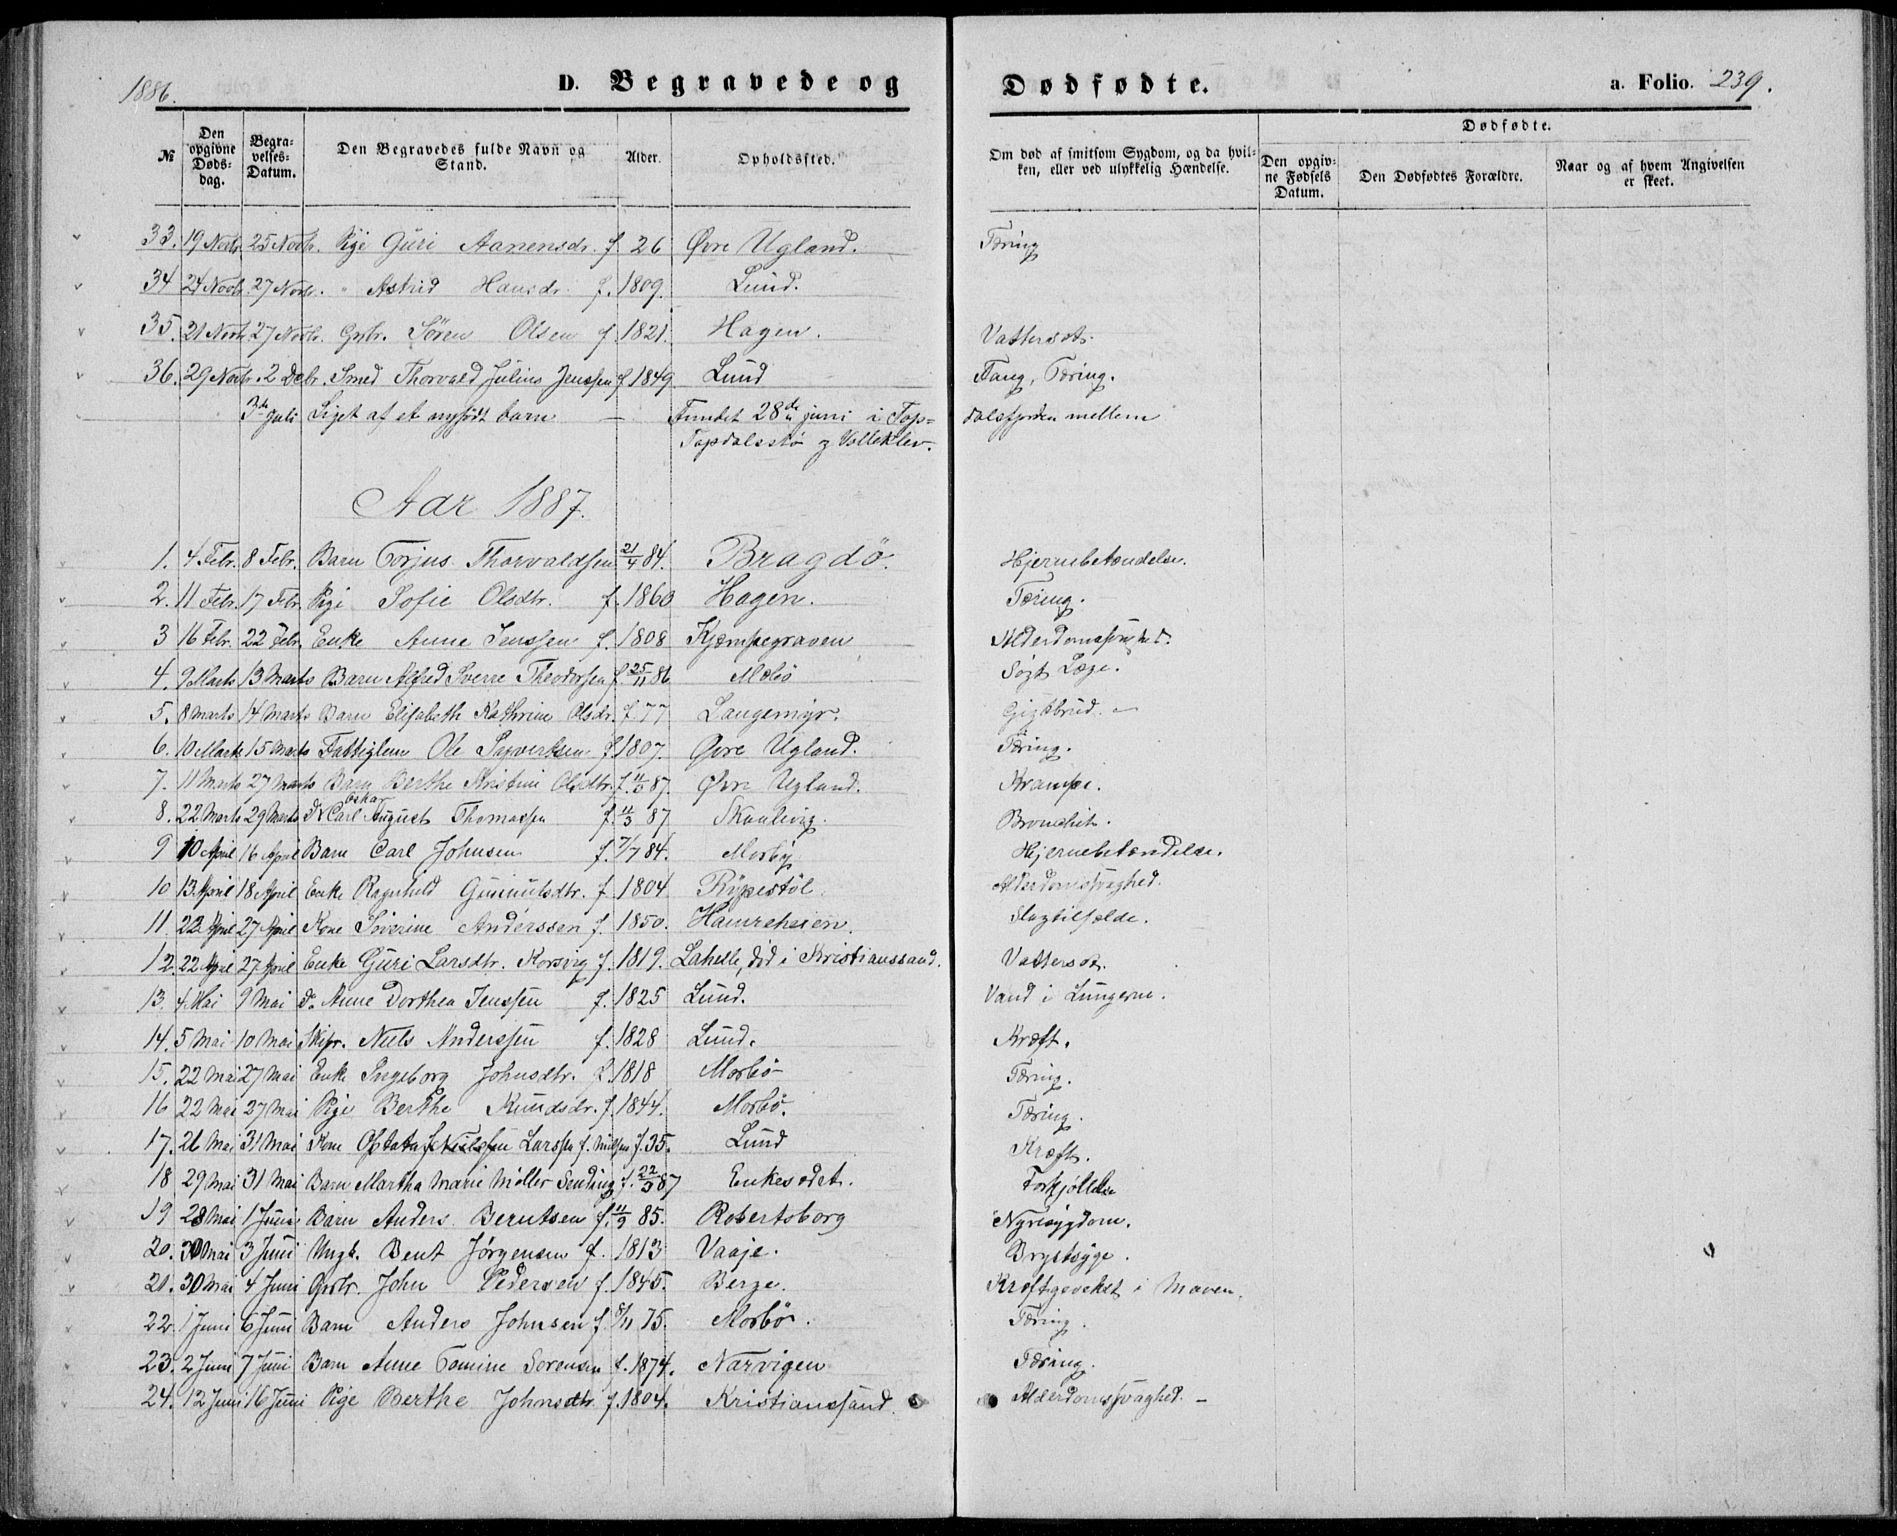 1886.
D. Begravede og Dødfødte.
a. Folio. 239.
№
Den opgivne Døds-dag.
Begra-velses-Datum.
Den Begravedes fulde Navn og Stand.
Alder.
Opholdssted.
Om død af smitsom Sygdom, og da hvil-ken, eller ved ulykkelig Hændelse.
Dødfødte.
Den opgiv-ne Fødsels Datum.
Den Dødfødtes Forældre.
Naar og af hvem Angivelsen er skeet.
33. 19 Novbr. 25 Novbr. Pige Guri Aanensdr. f. 26 Øvre Ugland. Tæring
34 24 Novbr. 27 Novbr. " Astrid Hansdr. f. 1809. Lund.
35. 21 Novbr. 27 Novbr. Grbr. Sören Olsen f. 1821. Hagen. Vattersot.
36. 29 Novbr. 2 Debr. Smed Thorvald Julius Jenssen f. 1849 Lund Tæring.
3de Juli Liget af et nyfödt barn — Fundet 28de juni i Top= dalsfjorden mellem
Topdalsstø og Volleklev.
Aar 1887.
1. 4 Febr. 8 Febr. Barn Torjus Thorvaldsen 21/4 84. Bragdö. Hjernebetændelse.
2. 11 Febr. 17 Febr. Pige Sofie Olsdtr. f. 1860 Hagen. Tæring.
3 16 Febr. 22 Febr. Enke Anne Jenssen f. 1808 Kjæmpegraven
4. 9 Marts 13 Marts Barn Alfred Sverre Theodorsen f 25/11 86 Mæbö Søgt Læge.
5. 8 Marts 14 Marts Barn Elisabeth Kathrine Olsdr. f. 77 Langemyr.
6. 10 Marts 15 Marts Fattiglem Ole f. 1807. Øvre Ugland. Tæring.
7. 11 Marts 27 Marts Barn Berthe Kristine Olsdtr. f. 11/3 87. Øvre Ugland. Krampe.
8. 22 Marts 29 Marts Do Carl Oskar August Thomassen f. 11/3 87 Bronchit.
9 10 April 16 April Barn Carl Johnsen f. 7/7 84. Mosby Hjernebetændelse.
10 13 April 18 April Enke Ragnhild Gunnulsdtr. f. 1804 Rypestöl Alderdomssvaghed.
11. 22 April 27 April Kone Söverine Anderssen f. 1850. Hamreheien. Slagtilfælde.
12. 22 April 27 April Enke Guri Larsdtr. Korsvig f. 1819. Lahelle, död i Kristianssand. Vattersot.
13. 4 Mai 9 Mai do Anne Dorthea Jenssen f. 1825 Lund. Vand i Lungerne.
14. 5 Mai 10 Mai Skipr. Niels Anderssen f. 1828 Lund. Kræft.
15. 22 Mai 27 Mai Enke Ingeborg Johnsdtr. f. 1818 Mosbö Tæring.
16 22 Mai 27 Mai Pige Berthe Knudsdr. f. 1844. Mosbö. Tæring.
17. 26 Mai 31 Mai Kone Larssen f. Nielsen f. 35. Lund Kræft.
18 29 Mai 31 Mai Barn Martha Marie Möller f. 22/3 87 Enkesædet. Forkjölelse
19 28 Mai 1 Juni Barn Anders Berntsen f. 11/9 85. Robertsborg Nyresygdom.
20. 30 Mai 3 Juni Ungk. Bent Jörgensen f. 1813 Vaaje. Brystsyge.
21. 30 Mai 4 Juni Grbr. John Pedersen f. 1845. Berge. Kræftgevekst i Maven.
22. 1 Juni 6 Juni Barn Anders Johnsen f. 8/11 75. Mosbö. Tæring.
23. 2 Juni 7 Juni Barn Anne Tomine Sorensen f. 1874. Narvigen Tæring.
24. 12 Juni 16 Juni Pige Berthe Johnsdtr. f. 1804. Kristianssand Alderdomssvaghed. —